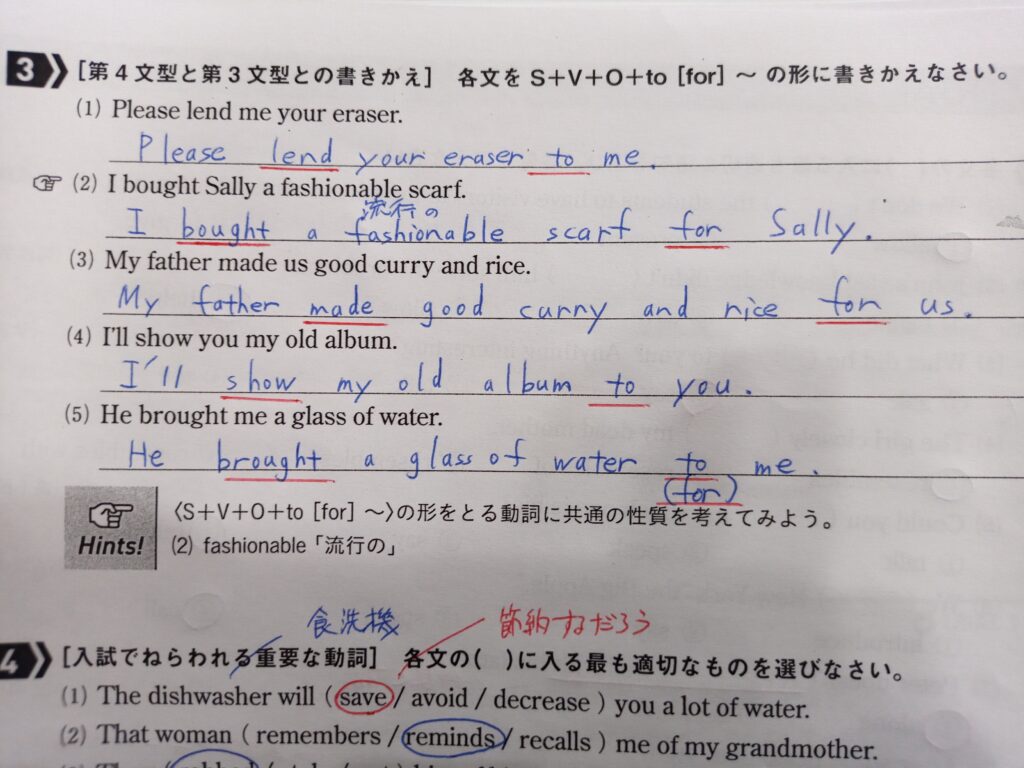 3 [第4文型と第3文型との書きかえ] 各文を S+V+O+to [for] ～ の形に書きかえなさい。
(1) Please lend me your eraser.
Please lend your eraser to me.
(2) I bought Sally a fashionable scarf.
流行の
I bought a fashionable scarf for Sally.
(3) My father made us good curry and rice.
My father made good curry and rice for us.
(4) I'll show you my old album.
I'll show my old album to you.
(5) He brought me a glass of water.
He brought a glass of water to me.
(for)
Hints!
〈S+V+O+to [for] ～〉の形をとる動詞に共通の性質を考えてみよう。
(2) fashionable「流行の」
食洗機 節約するだろう
4 [入試でねらわれる重要な動詞] 各文の( )に入る最も適切なものを選びなさい。
(1) The dishwasher will ( save / avoid / decrease ) you a lot of water.
(2) That woman ( remembers / reminds / recalls ) me of my grandmother.